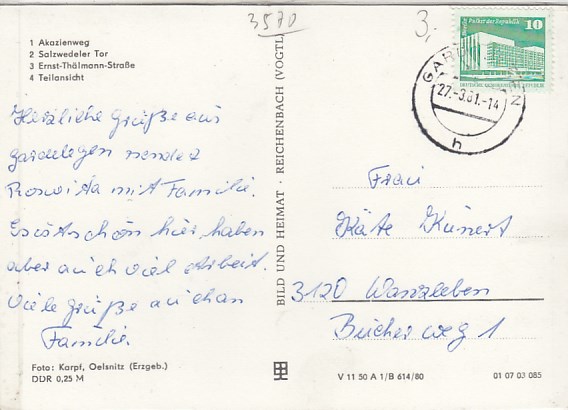 3570
3,-
1 Akazienweg
2 Salzwedeler Tor
3 Ernst-Thälmann-Straße
4 Teilansicht
Herzliche Grüße aus
Gardelegen sendet
Roswita mit Familie.
Es ist schön hier, haben
aber auch viel Arbeit.
Viele Grüße auch an
Familie.
Foto: Karpf, Oelsnitz (Erzgeb.)
DDR 0,25 M
BILD UND HEIMAT · REICHENBACH (VOGTL)
Palast der Republik
10
27.-3.81.-14
h
Frau
Käte Kunert
3120 Wanzleben
Bucherweg 1
V 11 50 A 1/B 614/80
01 07 03 085